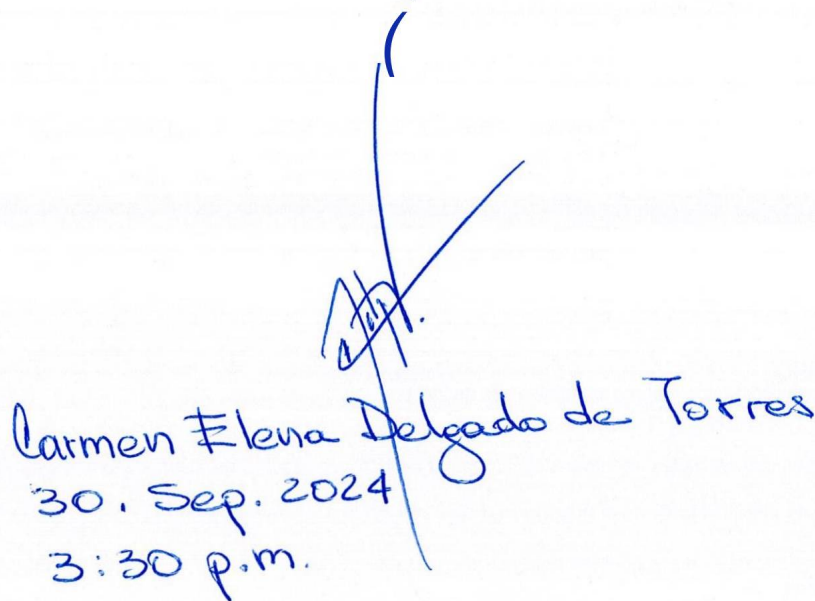 Carmen Elena Delgado de Torres
30. Sep. 2024
3:30 p.m.